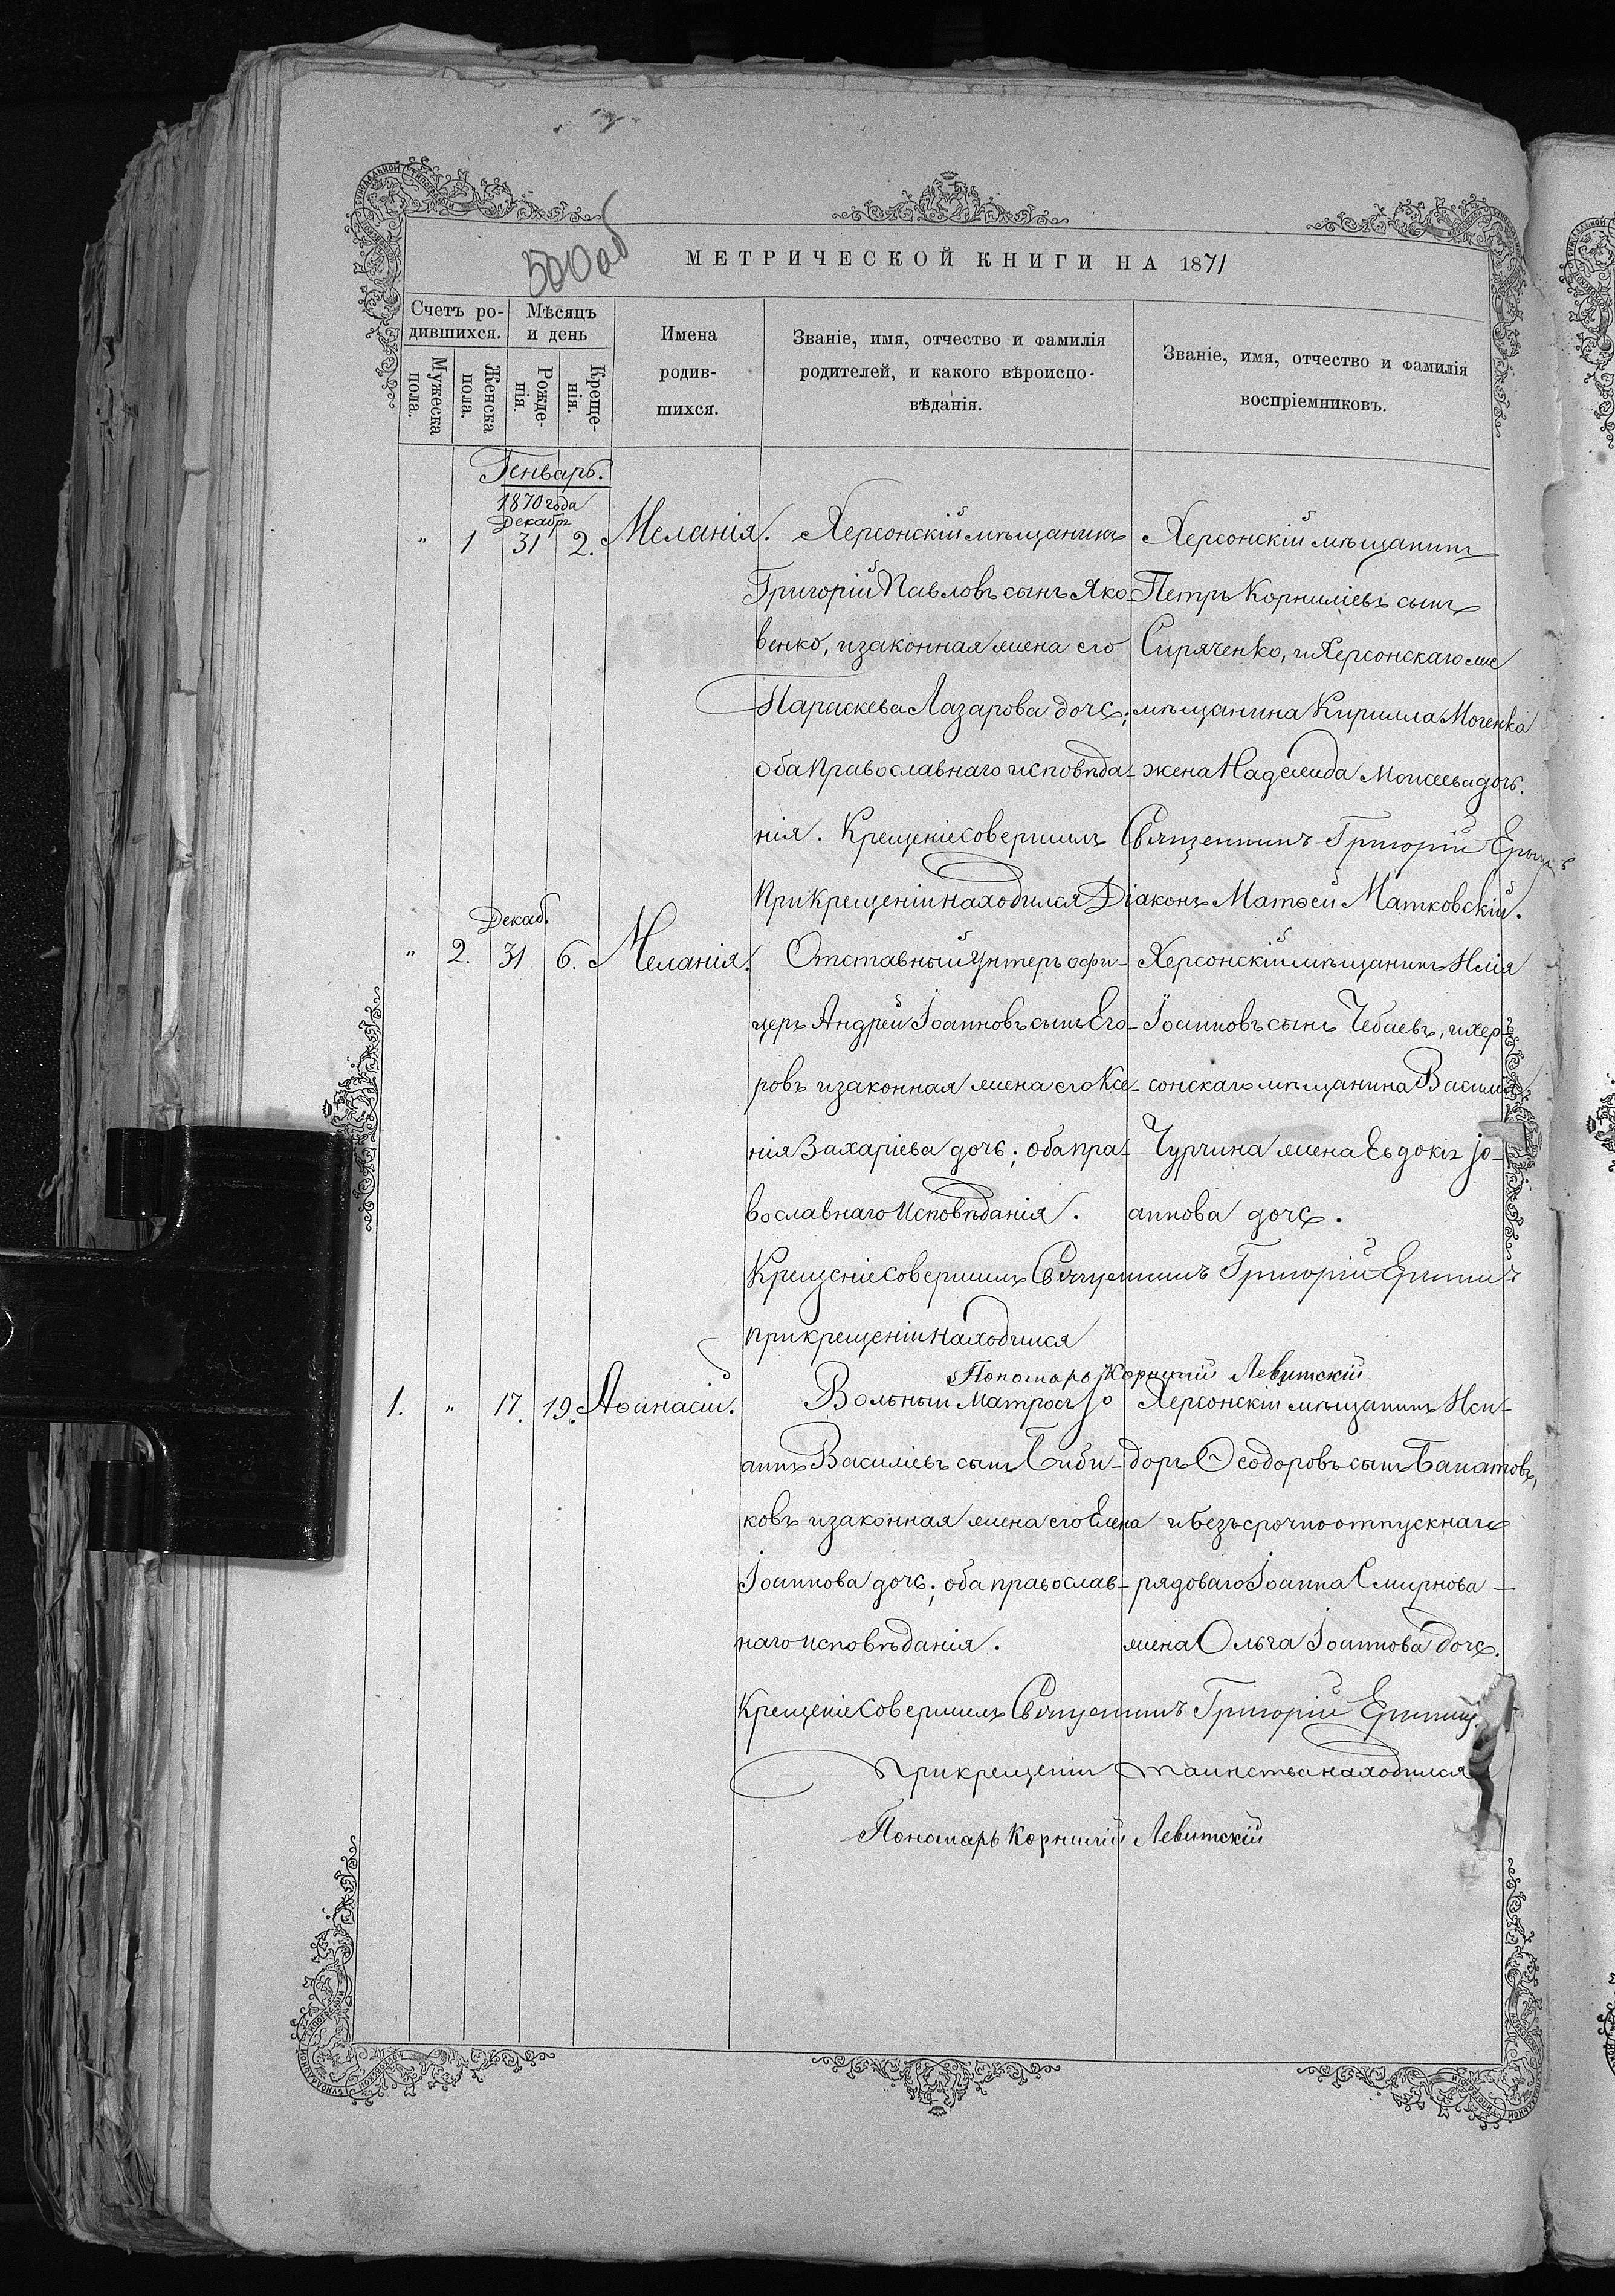 500 об
МЕТРИЧЕСКОЙ КНИГИ НА 1871
Счетъ ро-
дившихся.
Мѣсяцъ
и день
Мужеска
пола.
Женска
пола.
Рожде-
нія.
Креще-
нія.
Имена
родив-
шихся.
Званіе, имя, отчество и фамилія
родителей, и какого вѣроиспо-
вѣданія.
Званіе, имя, отчество и фамилія
воспріемниковъ.
Генварь.
1870 года
Декабрь
" 1 31 2. Меланія.
Херсонскій мѣщанинъ
Григорій Павловъ сынъ Яко-
венко, и законная жена его
Параскева Лазарова дочь;
оба Православнаго исповѣда-
нія. Крещеніе совершилъ Священникъ Григорій
При Крещеніи находился Діаконъ Матѳей Матковскій.
Херсонскій мѣщанинъ
Петръ Корниліевъ сынъ
Сиряченко, и Херсонскаго ме
мѣщанина Кирилла Моченка
жена Надежда Моисеева дочь.
Декаб.
" 2. 31 6. Меланія.
Отставный Унтеръ офи-
церъ Андрей Іоанновъ сынъ Его-
ровъ и законная жена его Ксе-
нія Захаріева дочь; оба пра-
вославнаго Исповѣданія.
Херсонскій мѣщанинъ Илія
Іоанновъ сынъ Чебаевъ, и хер-
сонскаго мѣщанина Василія
Чурчина жена Евдокія Іо-
аннова дочь.
Крещеніе совершилъ Священникъ Григорій
при крещеніи находился
Пономарь Корнилій Левитскій
1. " 17. 19. Аѳанасій.
Вольный матросъ Іо
аннъ Василіевъ сынъ Биби-
ковъ и законная жена его Елена
Іоаннова дочь; оба православ-
наго исповѣданія.
Херсонскій мѣщанинъ Иси-
доръ Ѳеодоровъ сынъ Банатовъ,
и безъсрочноотпускнаго
рядоваго Іоанна Смирнова
жена Ольга Іоаннова дочь.
Крещеніе Совершилъ Священникъ Григорій
При крещеніи таинства находился
Пономарь Корнилій Левитскій